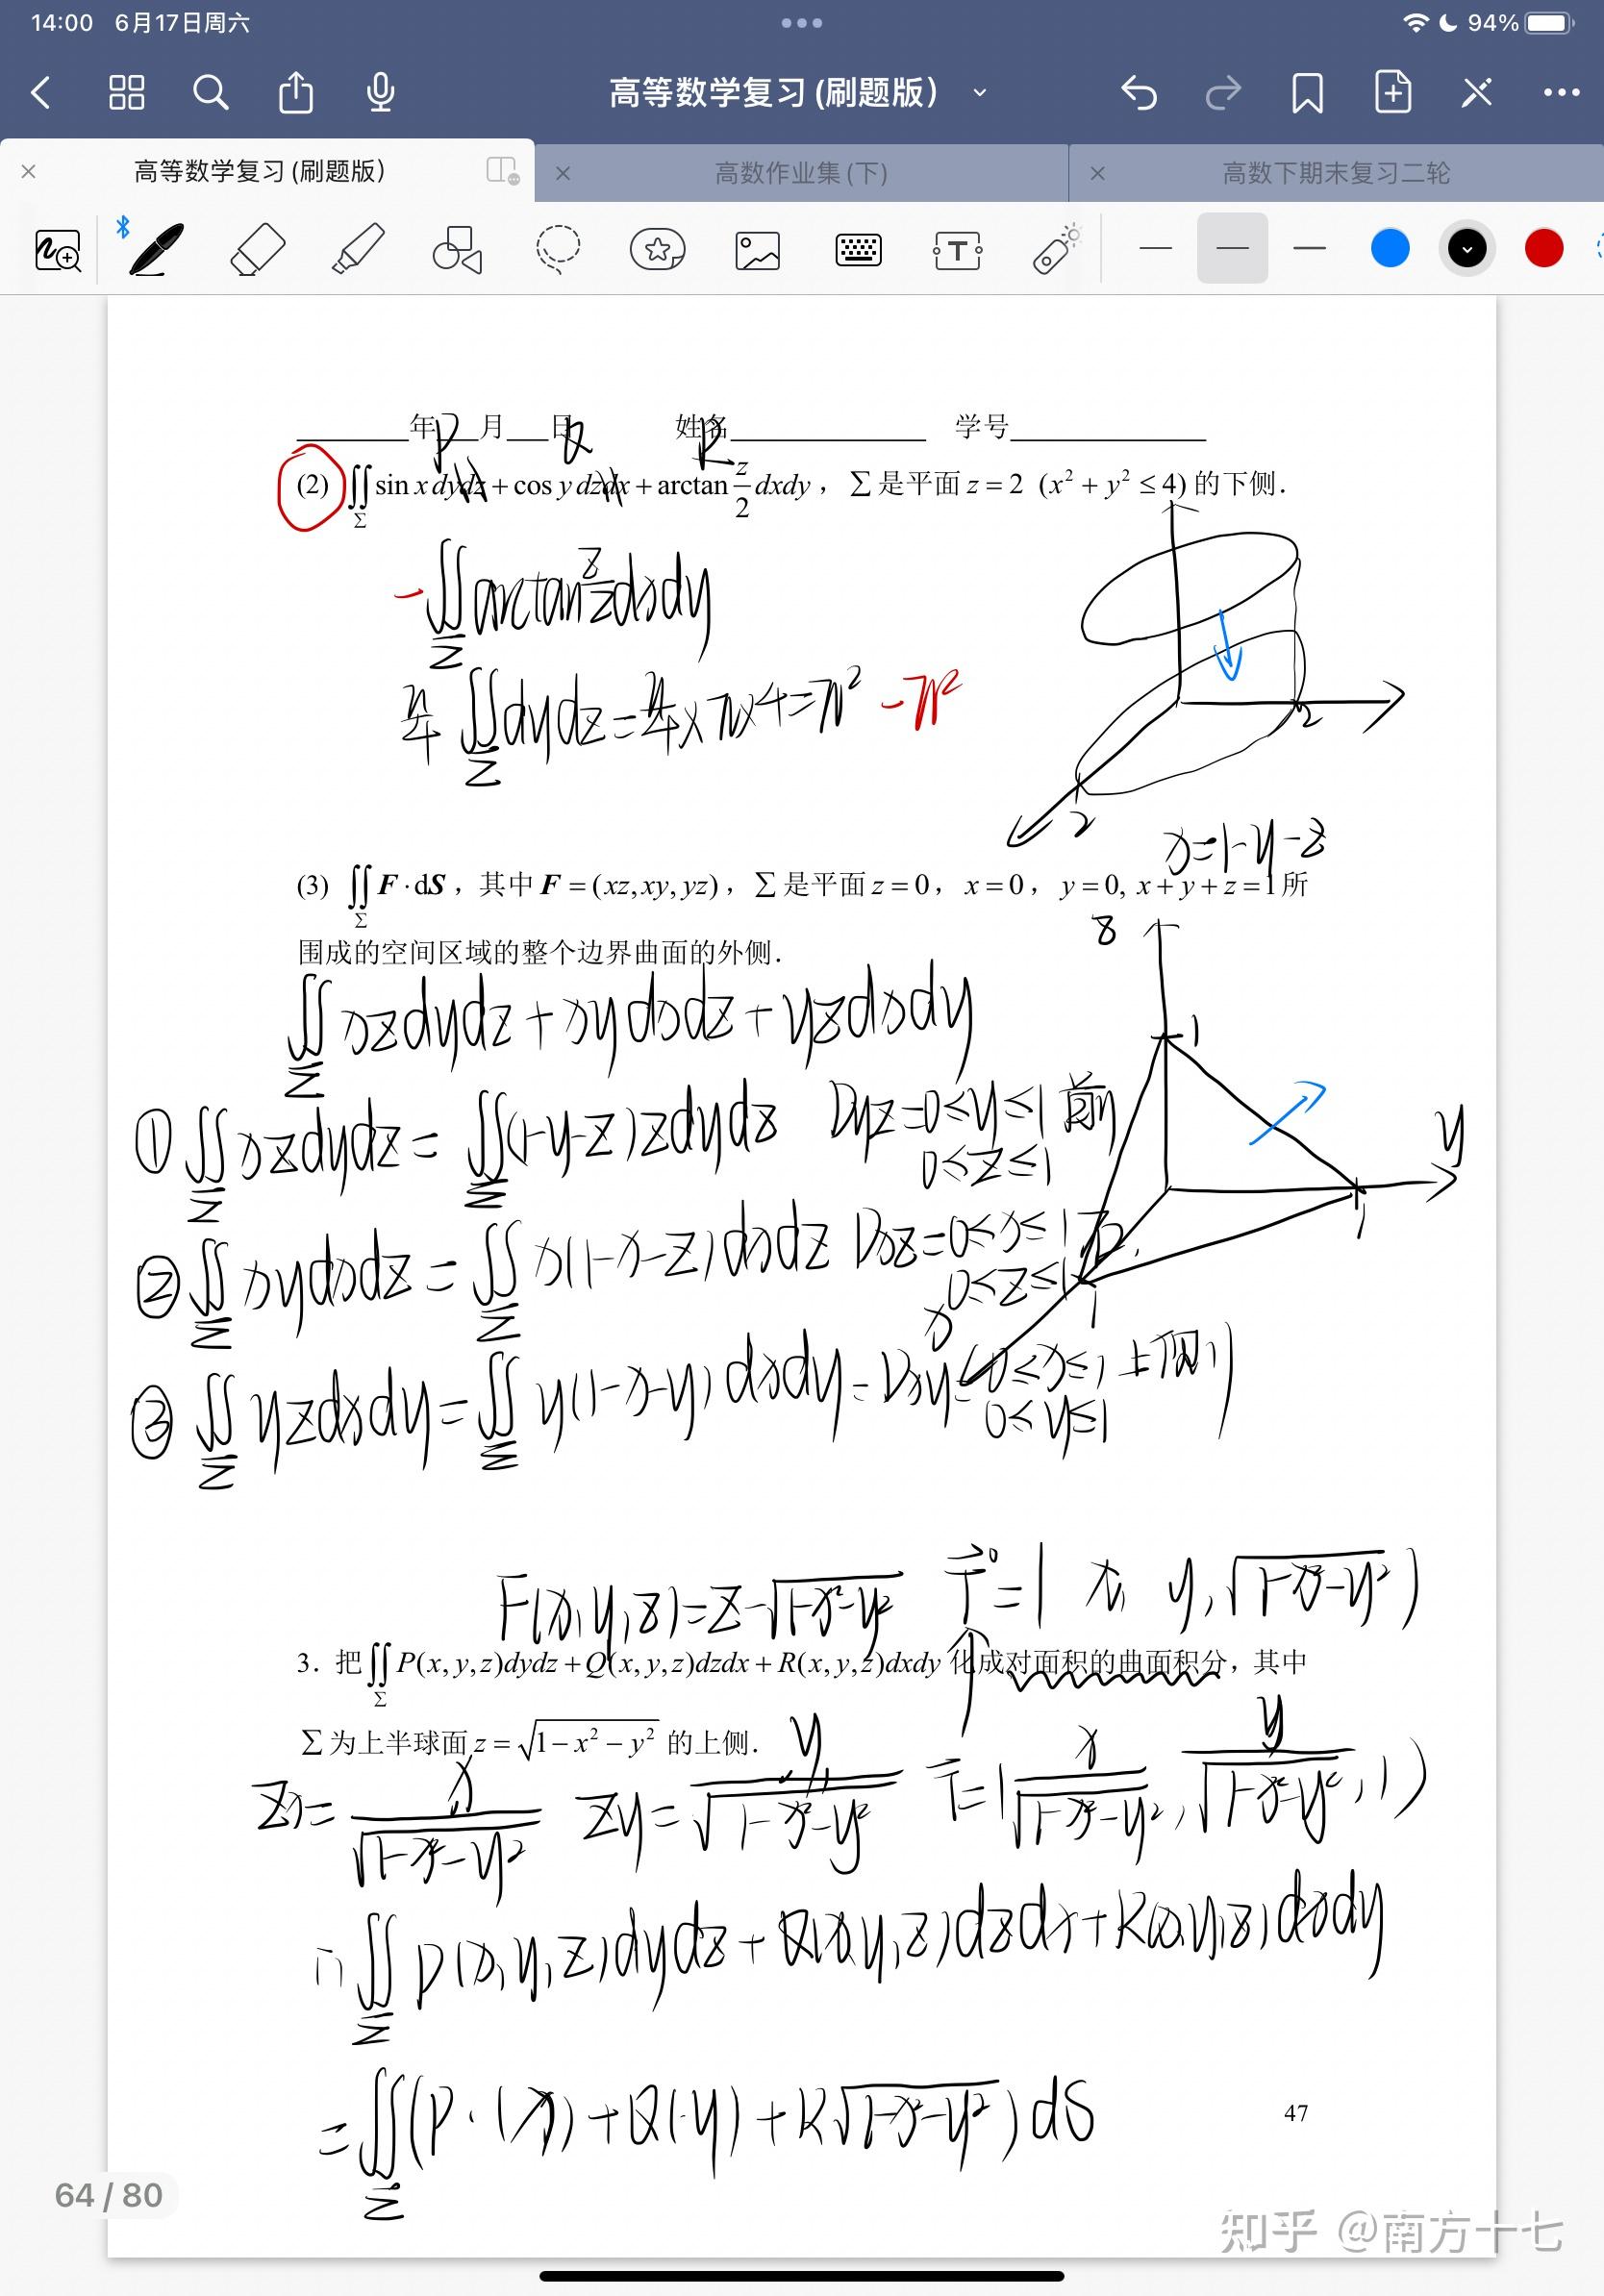 14:00 6月17日周六
94%
高等数学复习(刷题版)
高等数学复习(刷题版)
高数作业集(下)
高数下期末复习二轮
年 月 日 姓名 学号
P Q R
(2) ∬_Σ sin x dydz + cos y dzdx + arctan z/2 dxdy，Σ 是平面 z = 2 (x² + y² ≤ 4) 的下侧.
-∬_Σ arctan z/2 dxdy
π/4 ∬_Σ dydz = π/4 × π × 4 = π² -π²
2
2
x=1-y-z
(3) ∬_Σ F·dS，其中 F = (xz, xy, yz)，Σ 是平面 z = 0，x = 0，y = 0, x + y + z = 1 所
围成的空间区域的整个边界曲面的外侧.
z
∬_Σ xzdydz + xydxdz + yzdxdy
1
① ∬_Σ xzdydz = ∬_Σ (1-y-z)zdydz Dyz=0≤y≤1 前
0≤z≤1
y
1
② ∬_Σ xydxdz = ∬_Σ x(1-x-z)dxdz Dxz=0≤x≤1 右
0≤z≤1
x 1
③ ∬_Σ yzdxdy = ∬_Σ y(1-x-y)dxdy = Dxy=0≤x≤1 上侧
0≤y≤1
F(x,y,z)=z-√(1-x²-y²) T⁰=(x, y, √(1-x²-y²))
3. 把 ∬_Σ P(x, y, z)dydz + Q(x, y, z)dzdx + R(x, y, z)dxdy 化成对面积的曲面积分，其中
Σ 为上半球面 z = √(1-x²-y²) 的上侧.
Zx= x/√(1-x²-y²) Zy= y/√(1-x²-y²) T=(x/√(1-x²-y²), y/√(1-x²-y²), 1)
∬_Σ P(x,y,z)dydz + Q(x,y,z)dzdx + R(x,y,z)dxdy
=∬_Σ (P·(x)+Q(·y)+R√(1-x²-y²))dS
47
64 / 80
知乎 @南方十七